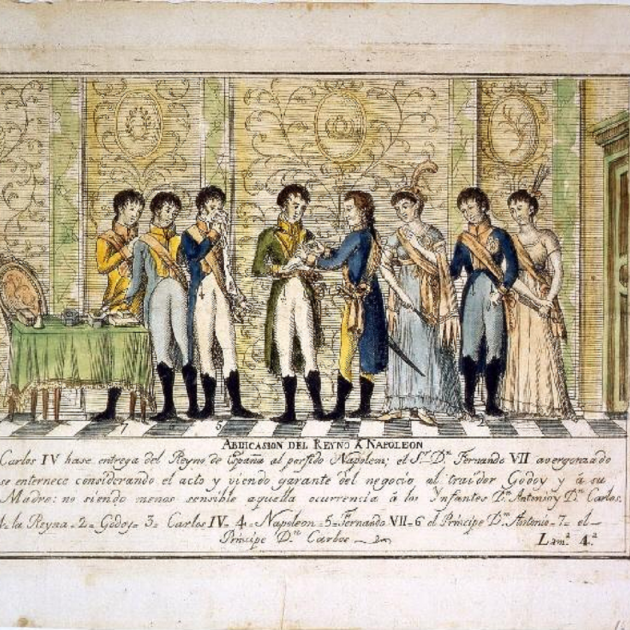 7
5
2
ABDICASION DEL REYNO Á NAPOLEON
Carlos IV hase entrega del Reyno de España al perfido Napoleon; el Sr. Dn. Fernando VII avergonzado
se enternece considerando el acto y viendo garante del negocio al traidor Godoy y á su
Madre: no siendo menos sensible aquella ocurrencia á los Infantes Dn. Antonio y Dn. Carlos.
1. la Reyna - 2 - Godoy - 3 - Carlos IV - 4 - Napoleon - 5 - Fernando VII - 6 el Principe Dn. Antonio - 7 - el
Principe Dn. Carlos
Lama. 4.a